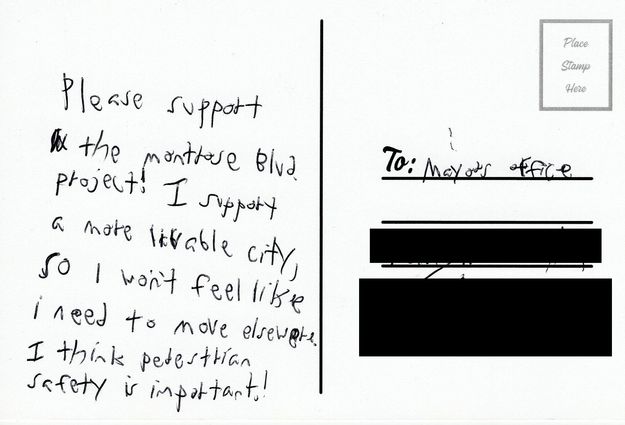 Please support
the montrose Blvd.
project! I support
a more livable city,
so I won't feel like
i need to move elsewere.
I think pedestrian
safety is important!
Place
Stamp
Here
To: Mayor's office